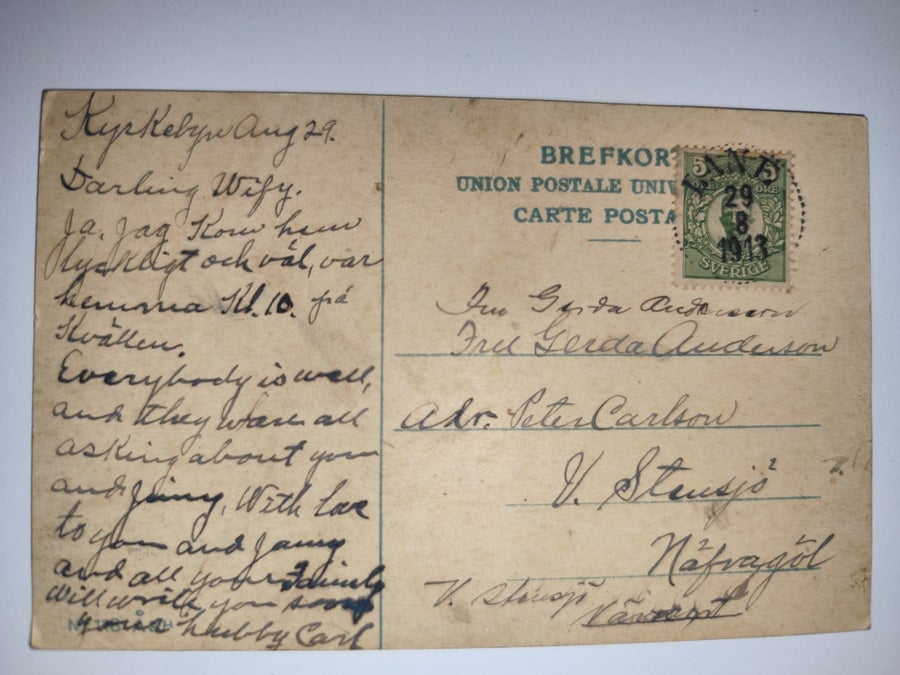 Kyrkebyn Aug 29.
Darling Wify.
Ja. jag Kom hem
lyckligt och väl, var
hemma Kl. 10. på
Kvällen.
Everybody is well,
and they ware all
asking about you
and Jenny, With love
to you and Jenny
and all your Family
will write you soon
your hubby Carl
BREFKOR
UNION POSTALE UNIV
CARTE POSTA
5 ÖRE
29
8
1913
SVERIGE
Fru Gerda Anderson
Fru Gerda Anderson
Adr. Peter Carlson
V. Stensjö
Näfragöl
V. Stensjö